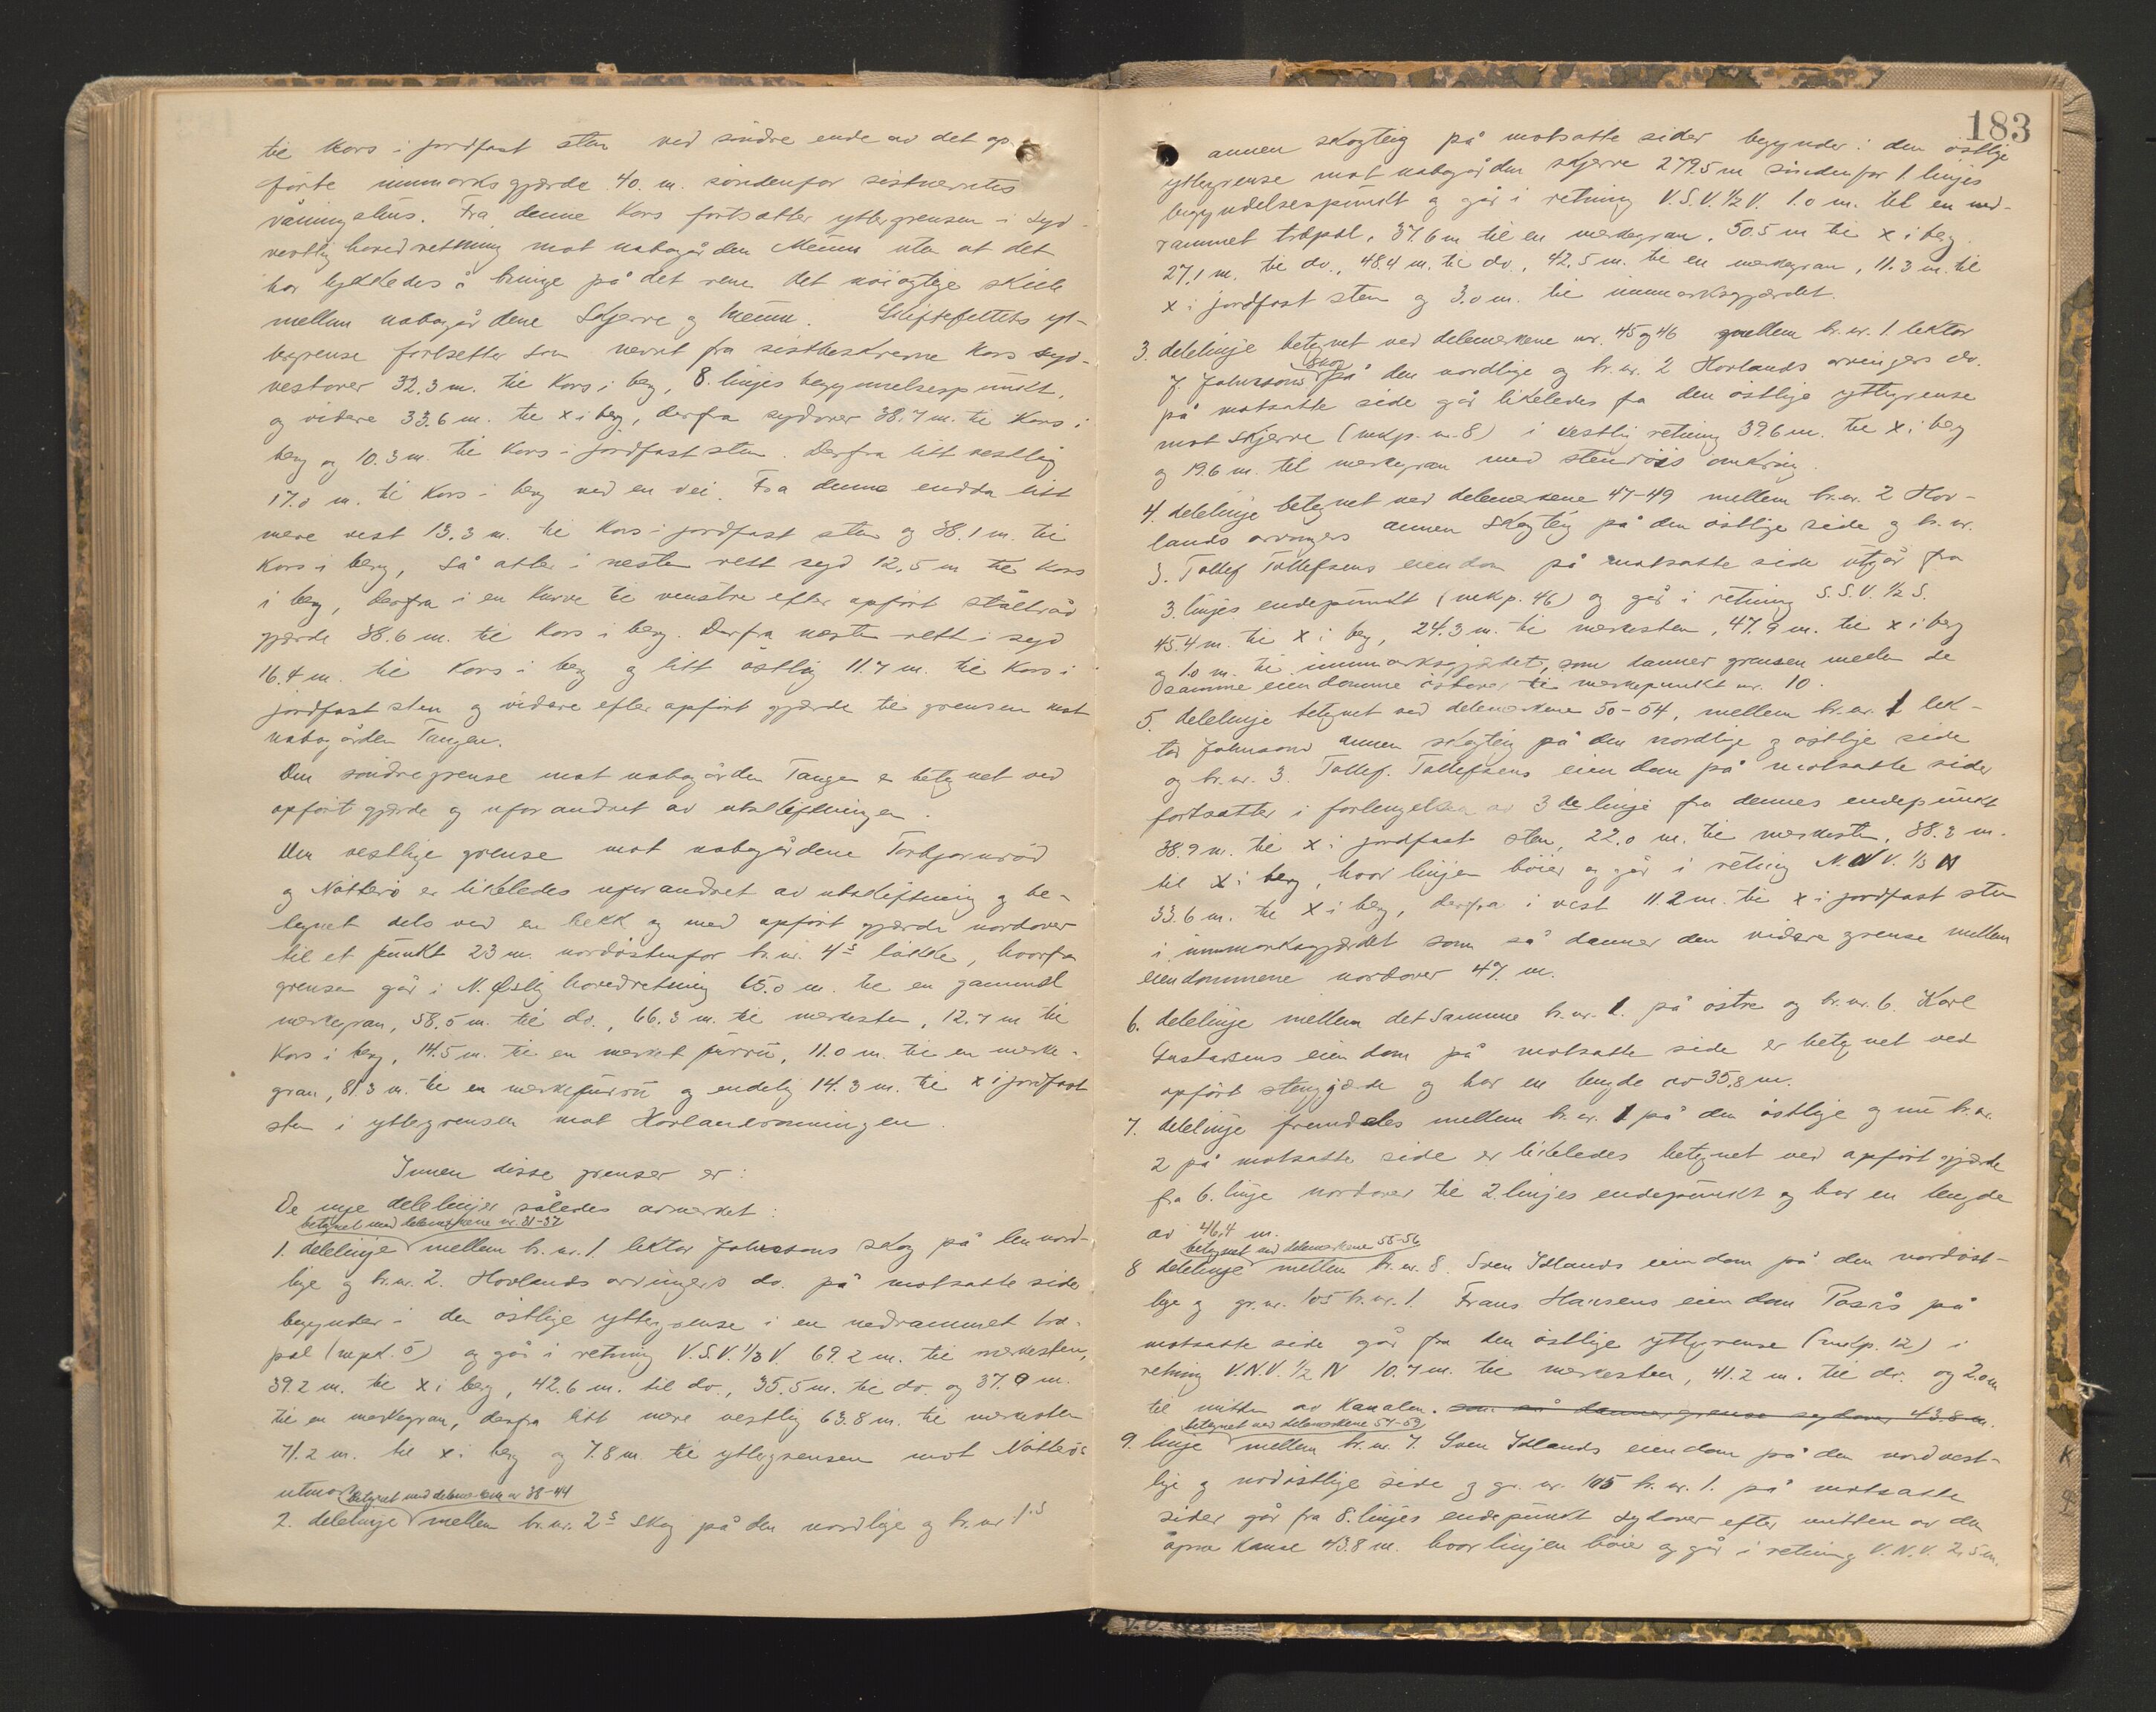 til kors i jordfast sten ved søndre ende av det op-
førte innmarksgjærde 40. m. søndenfor sistnevntes
våningshus. Fra denne Kors fortsætter yttergrensen i syd-
vestlig hovedretning mot nabogården Meum uten at det
har lykkedes å bringe på det rene det nøiagtige skille
mellem nabogårdene Skjerve og Meum. Skiftefeltets yt-
tergrense fortsetter som nevnt fra sistbeskrevne Kors syd-
vestover 32.3 m. til Kors i berg, 8. linjes begynnelsespunkt,
og videre 33.6 m. til x i berg, derfra sydover 38.7 m. til Kors i
berg og 10.3 m. til Kors i jordfast sten. Derfra litt vestlig
17.0 m. til Kors i berg ved en vei. Fra denne endda litt
mere vest 13.3 m. til Kors i jordfast sten og 38.1 m. til
Kors i berg, så atter i nesten rett syd 12.5 m til Kors
i berg, derfra i en kurve til venstre efter opført ståltråd
gjærde 38.6 m. til Kors i berg. Derfra næsten rett i syd
16.4 m. til Kors i berg og litt østlig 11.7 m. til Kors i
jordfast sten og videre efter opført gjærde til grensen mot
nabogården Tangen.
Den søndre grense mot nabogården Tangen er betegnet ved
opført gjærde og uforandret av utskiftningen.
Den vestlige grense mot nabogårdene Torbjørnrød
og Nøtterø er likeledes uforandret av utskiftning og be-
tegnet dels ved en bekk og med opført gjærde nordover
til et punkt 23 m. nordøstenfor br.nr. 4s løkke, hvorfra
grensen går i N. Østlig hovedretning 65.0 m. til en gammel
merkegran, 58.5 m. til do., 66.3 m. til merkesten, 12.7 m til
Kors i berg, 14.5 m. til en merket furru, 11.0 m. til en merke-
gran, 81.3 m. til en merkefurru og endelig 14.3 m. til x i jordfast
sten i yttergrensen mot Hovlandrønningen.
Innen disse grenser er:
De nye delelinjer således avmerket:
betegnet med delemerkene nr. 31-37
1. delelinje mellem br. nr. 1. lektor Johnsons skog på den nord-
lige og br.nr. 2. Hovlands arvingers do. på motsatte side
begynder i den østlige yttergrense i en nedrammet træ-
pæl (mpk. 5) og går i retning V.S.V. 1/3 V. 69.2 m. til merkesten,
39.2 m. til x i berg, 42.6 m. til do., 35.5 m. til do. og 37.0 m.
til en merkegran, derfra litt mere vestlig 63.8 m. til merkesten
71.2 m. til x i berg og 7.8 m. til yttergrensen mot Nøtterøs
utmark
betegnet med delemerkene nr 38-44
2. delelinje mellem br.nr. 2s skog på den nordlige og br. nr 1.s
183
annen skogteig på motsatte sider begynder i den østlige
yttergrense mot nabogården Skjerve 279.5 m søndenfor 1 linjes
begyndelsespunkt og går i retning V.S.V. 1/2 V. 1.0 m. til en ned-
rammet træpæl, 37.6 m til en merkegran, 50.5 m til x i berg
27.1 m. til do., 48.4 m. til do., 42.5 m. til en merkegran, 11.3 m. til
x i jordfast sten og 3.0 m. til innmarksgjærdet.
3. delelinje betegnet ved delemerkene nr. 45 og 46 mellem br. nr. 1 lektor
J. Johnsons skog på den nordlige og br. nr. 2 Hovlands arvingers do.
på motsatte side går likeledes fra den østlige yttergrense
mot Skjerve (mkp. nr. 8) i vestlig retning 39.6 m. til x i berg
og 19.6 m. til merkegran med stenrøis omkring.
4. delelinje betegnet ved delemerkene 47-49 mellem br. nr. 2 Hov-
lands arvingers annen skogteig på den østlige side og br. nr.
3. Tollef Tollefsens eiendom på motsatte side utgår fra
3. linjes endepunkt (mkp. 46) og går i retning S.S.V. 1/2 S.
45.4 m. til x i berg, 24.3 m. til merkesten, 47.9 m. til x i berg
og 1.0 m. til innmarksgjærdet, som danner grensen mellem de
samme eiendomme østover til merkepunkt nr. 10.
5. delelinje betegnet ved delemerkene 50-54, mellem br. nr. 1 lek-
tor Johnsons annen skogteig på den nordlige og østlige side
og br. nr. 3. Tollef. Tollefsens eiendom på motsatte sider
fortsætter i forlengelsen av 3de linje fra dennes endepunkt
38.9 m. til x i jordfast sten, 22.0 m. til merkesten, 38.3 m.
til x i berg, hvor linjen bøier og går i retning N.N.V. 1/3 N
33.6 m. til x i berg, derfra i vest 11.2 m. til x i jordfast sten
i innmarksgjærdet som så danner den videre grense mellem
eiendommene nordover 47 m.
6. delelinje mellem det samme br. nr. 1. på østre og br. nr. 6. Karl
Gustavsens eiendom på motsatte side er betegnet ved
opført stengjærde og har en lengde av 35.8 m.
7. delelinje fremdeles mellem br. nr. 1 på den østlige og nu br. nr.
2 på motsatte side er likeledes betegnet ved opført gjærde
fra 6. linje nordover til 2. linjes endepunkt og har en lengde
av 46.4 m.
betegnet ved delemerkene 55-56
8 delelinje mellem br. nr. 8. Sven Islands eiendom på den nordøst-
lige og gr. nr. 105 br. nr. 1. Frans Hansens eiendom Rosås på
motsatte side går fra den østlige yttergrense (mkp. 12) i
retning V.N.V. 1/2 N 10.7 m. til merkesten, 41.2 m. til do. og 2.0 m
til midten av Kanalen. som så danner grense sydover 43.8 m.
betegnet ved delemerkene 57-59
9. linje mellem br. nr. 7. Sven Islands eiendom på den nordvest-
lige og nordøstlige side og gr. nr. 105 br. nr. 1. på motsatte
sider går fra 8. linjes endepunkt sydover efter midten av den
åpne Kanal 43.8 m. hvor linjen bøier og går i retning V.N.V. 2.5 m.